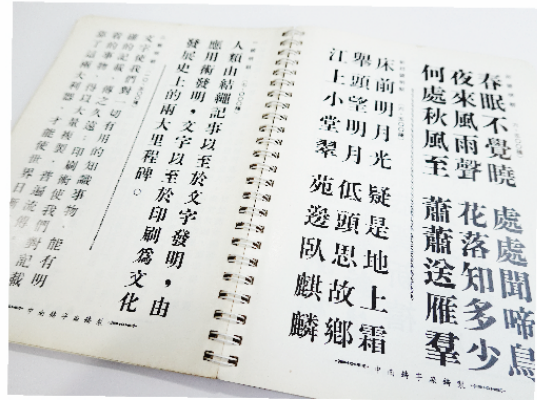 春眠不覺曉 處處聞啼鳥
夜來風雨聲 花落知多少
何處秋風至 蕭蕭送雁羣
床前明月光 疑是地上霜
舉頭望明月 低頭思故鄉
江上小堂翠 苑邊臥麒麟
中央鑄字編製
人類由結繩記事以至於文字發明，由
應用術發明，文字以至於印刷爲文化
發展史上的兩大里程碑。
文字使我們對一切有用的知識事物，能有明
確的記載，傳之久遠；印刷術使我們對記載
有的事物，得以大量複製，普遍流傳
靠了這兩大利器，才能使世界日新
中央鑄字編製